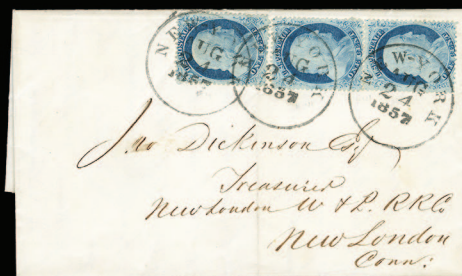 NEW-YORK
AUG
24
1857
NEW-YORK
AUG
24
1857
NEW-YORK
AUG
24
1857
Jno Dickinson Esq
Treasurer
New London W & P. RR Co
New London
Conn: